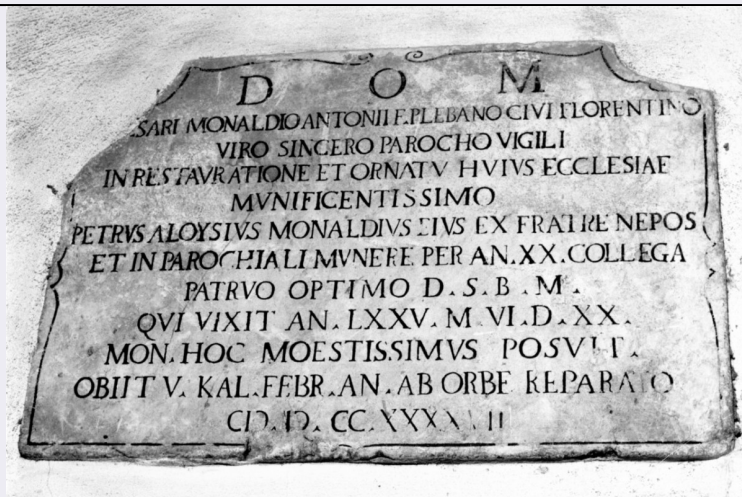 D O M
SARI MONALDIO ANTONII F. PLEBANO CIVI FLORENTINO
VIRO SINCERO PAROCHO VIGILI
IN RESTAVRATIONE ET ORNATV HVIVS ECCLESIAE
MVNIFICENTISSIMO
PETRVS ALOYSIVS MONALDIVS EIVS EX FRATRE NEPOS
ET IN PAROCHIALI MVNERE PER AN. XX. COLLEGA
PATRVO OPTIMO D. S. B. M.
QVI VIXIT AN. LXXV. M VI. D. XX.
MON. HOC MOESTISSIMVS POSVIT.
OBIIT V. KAL. FEBR. AN. AB ORBE REPARATO